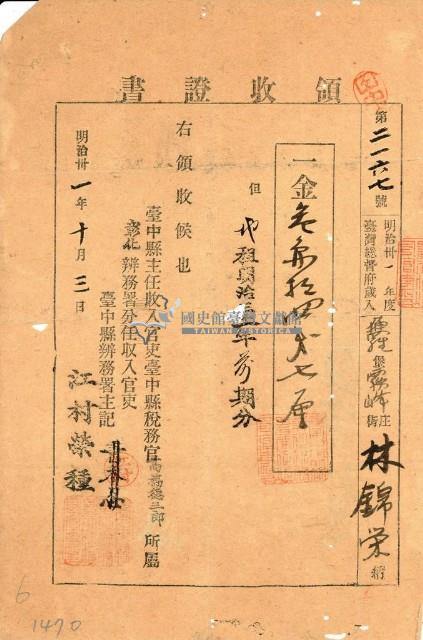 領收證書
第二一六七號
明治卅一年度
臺灣總督府歳入
堡霧峰庄街
林錦栄納
一金壱角拾四戔七厘
但地租明治年前期分
右領收候也
明治卅一年十月三日
臺中縣主任收入官吏臺中縣稅務官 所屬
彰化辨務署分任收入官吏
臺中縣辨務署主記
江村榮種
國史館臺灣文獻館
TAIWAN HISTORICA
6
1470